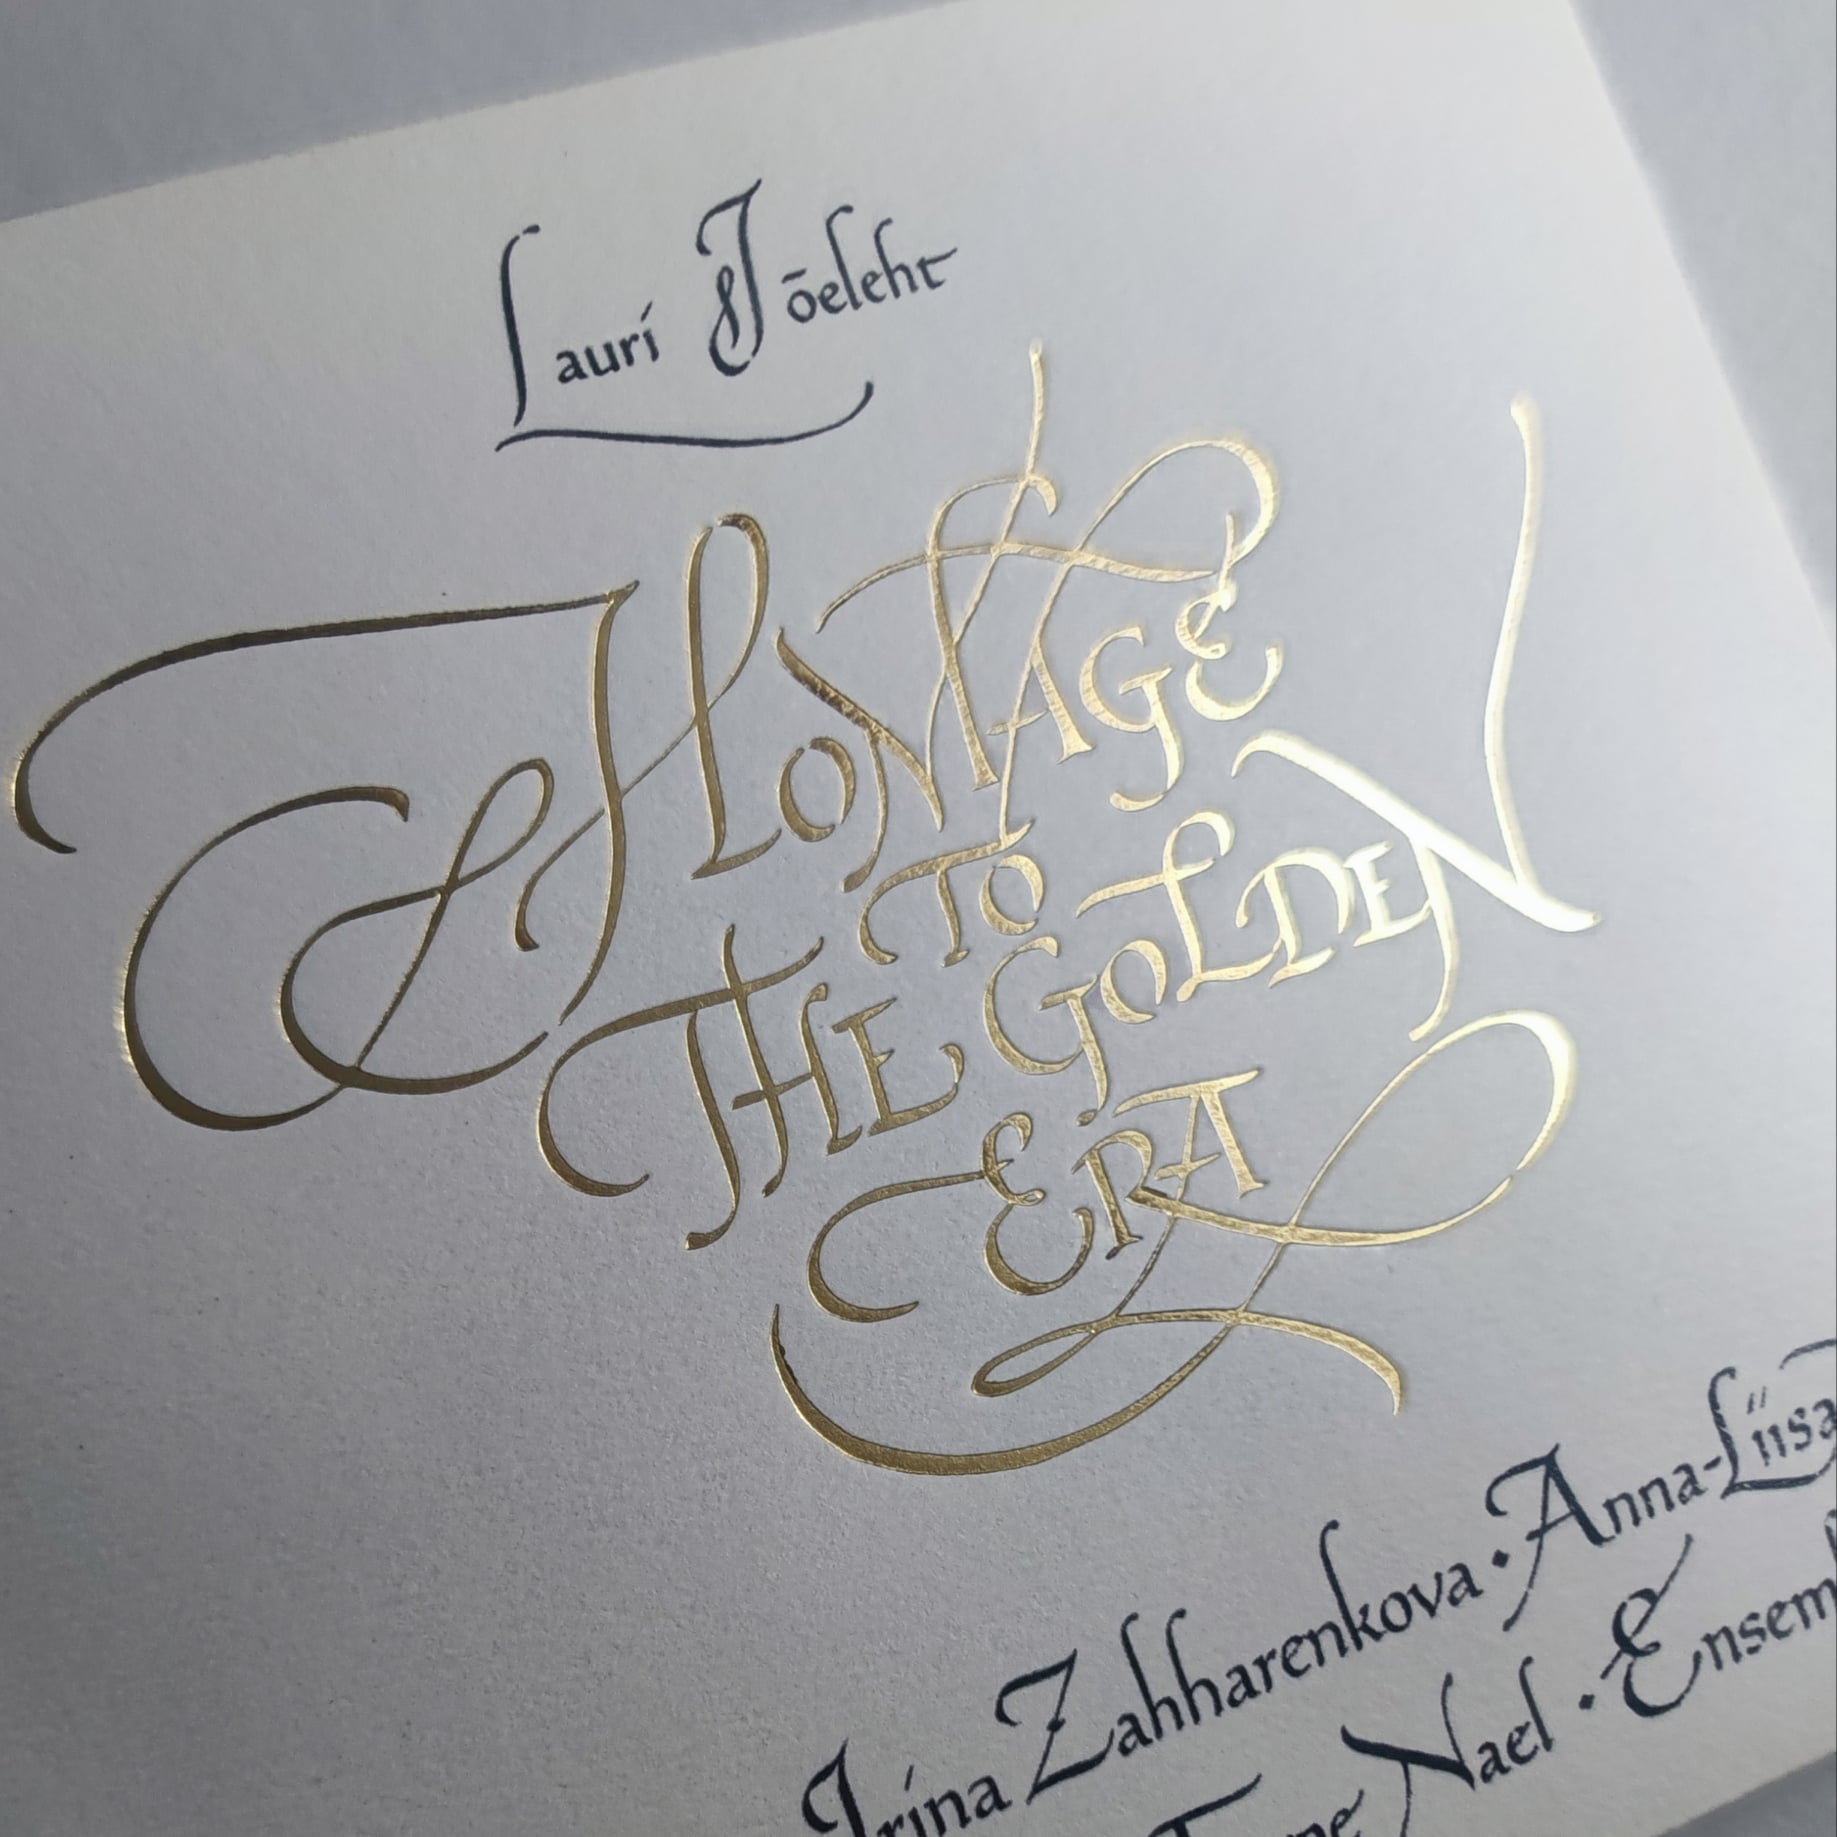 Lauri Jõeleht
HOMAGE
TO
THE GOLDEN
ERA
Irina Zahharenkova · Anna-Liisa
Nael · Ensem